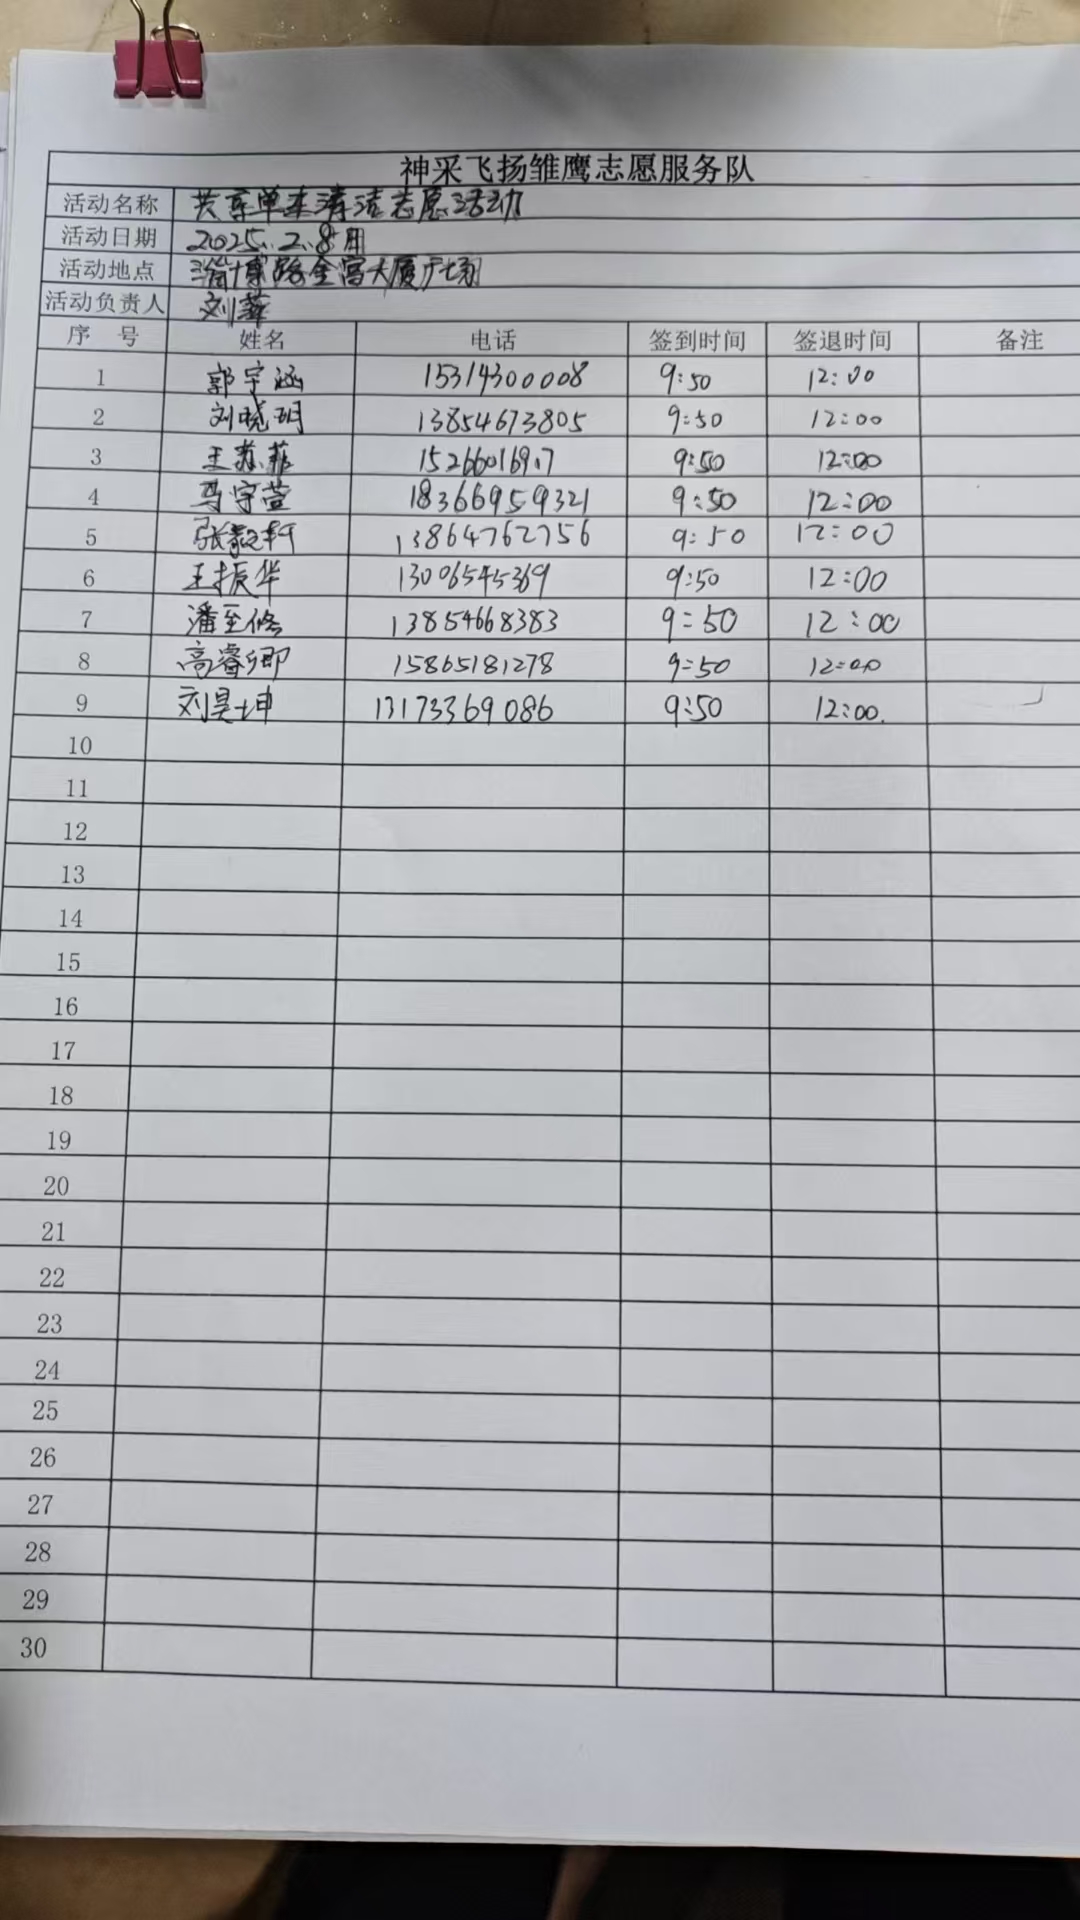 神采飞扬雏鹰志愿服务队
活动名称 共享单车清洁志愿活动
活动日期 2025.2.8日
活动地点 淄博路金宫大厦广场
活动负责人 刘莽
序 号 姓名 电话 签到时间 签退时间 备注
1 郭宇涵 15314300008 9:50 12:00
2 刘晓玥 13854673805 9:50 12:00
3 王苏菲 9:50 12:00
4 马宇萱 18366959321 9:50 12:00
5 张毅轩 13864762756 9:50 12:00
6 王振华 13006545369 9:50 12:00
7 潘至修 13854668383 9:50 12:00
8 高睿卿 15865181278 9:50 12:00
9 刘昊坤 13173369086 9:50 12:00.
10
11
12
13
14
15
16
17
18
19
20
21
22
23
24
25
26
27
28
29
30